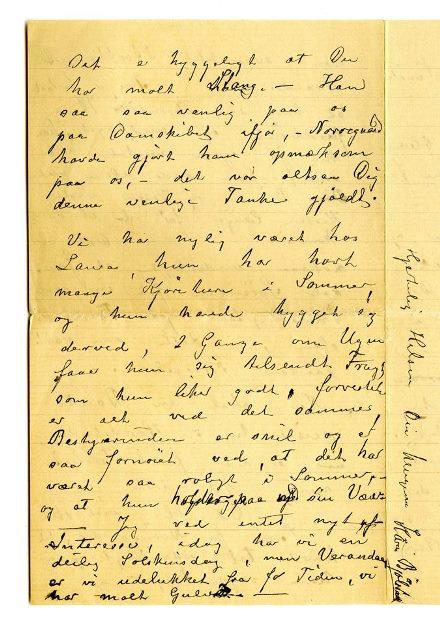 Det e hyggeligt at Du
har mødt Stang. — Han
saa saa venlig paa os
paa Dampskibet ifjor, —
havde gjort ham opmærksom
paa os, — det var altsaa Dig
denne venlige Tanke gjældt.
Vi har nylig været hos
Laura, hun har havt
mange Kjøreture i Sommer,
og hun havde hygget sig
derved, 2 Gange om Ugen
faaer hun sig tilsendt Frugt
som hun liker godt, forresten
er alt ved det samme,
Bestyrerinden er snil og er
saa fornøiet ved, at det har
været saa roligt i Sommer, —
og at hun paa sin Vær
— Jeg ved intet nyt af
Interesse, idag har vi en
deilig Solskinsdag, men Verandaen
er vi udelukket fra for Tiden, vi
har malt Gulvet. —
Hjertelig Hilsen Din hengivne